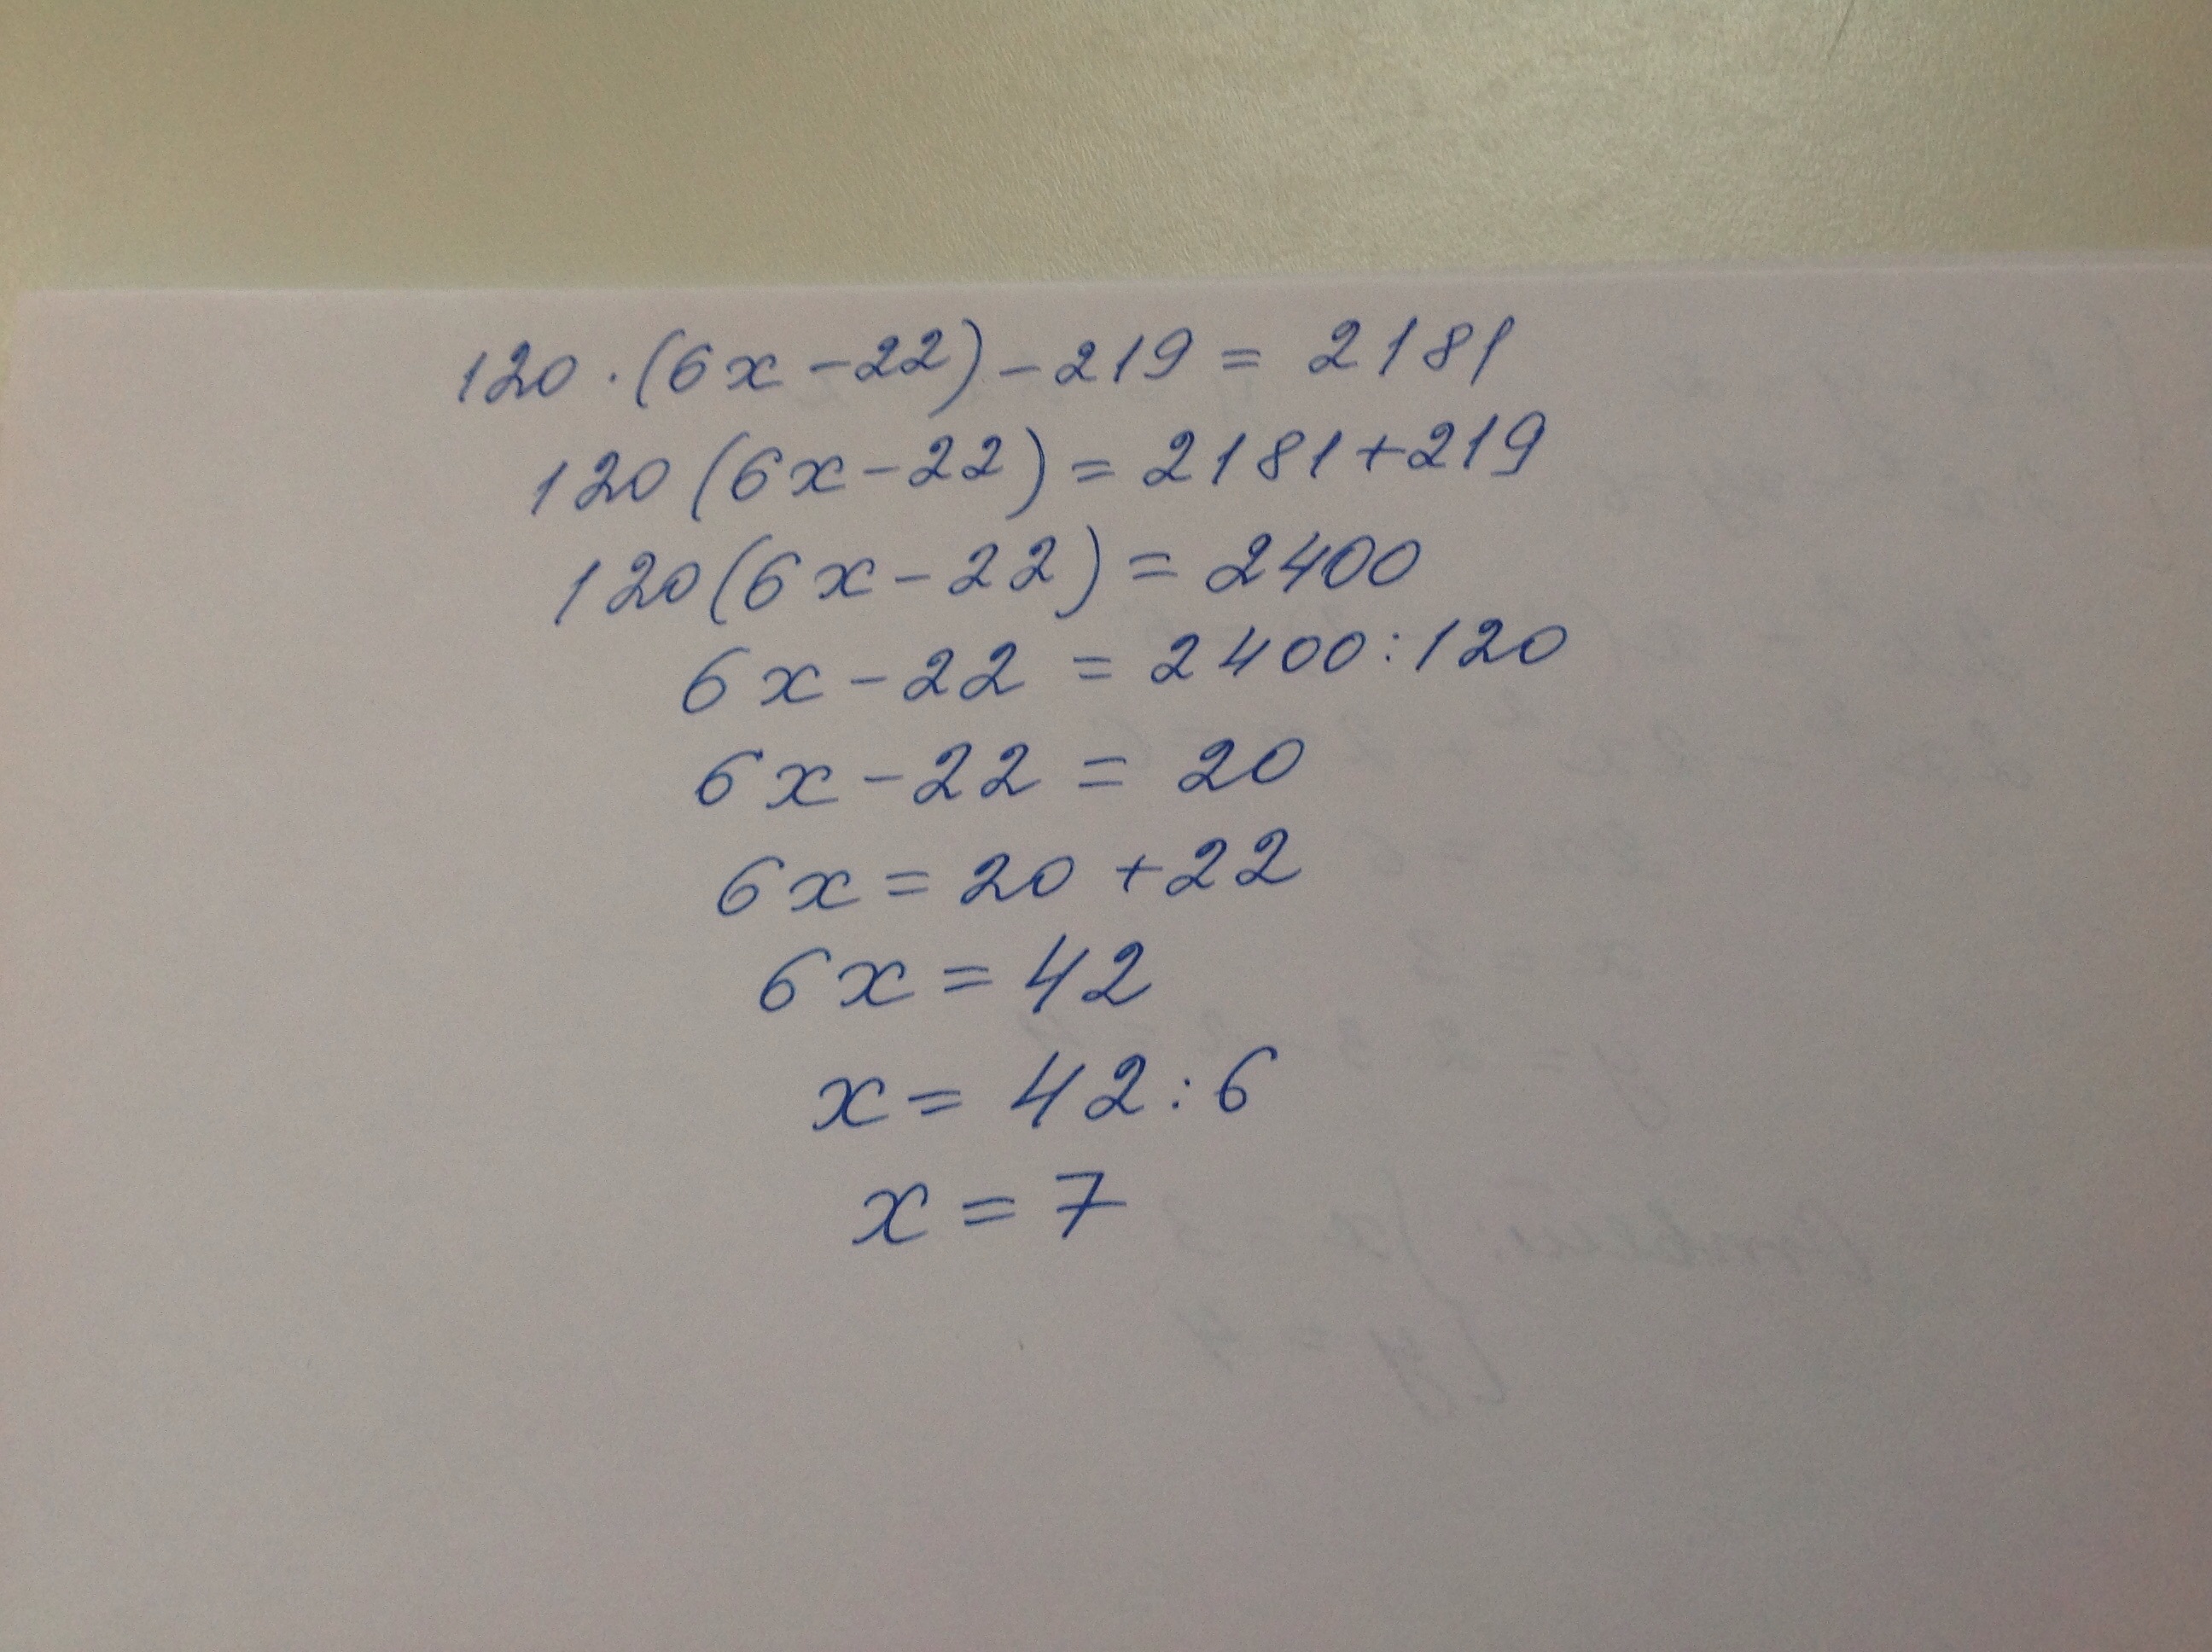 120 · (6x - 22) - 219 = 2181
120 (6x - 22) = 2181 + 219
120 (6x - 22) = 2400
6x - 22 = 2400 : 120
6x - 22 = 20
6x = 20 + 22
6x = 42
x = 42 : 6
x = 7